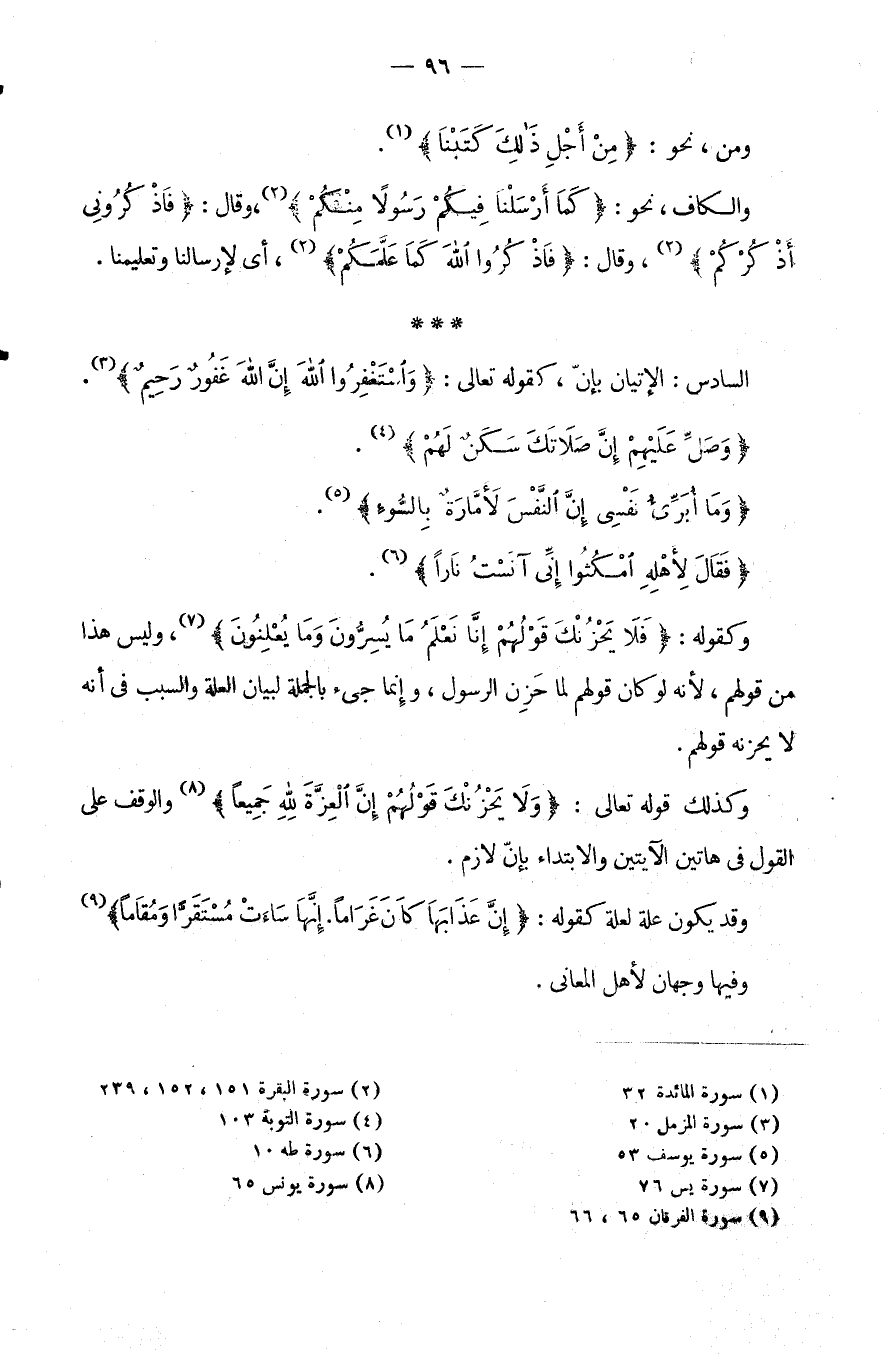 — ٩٦ —
ومن ، نحو : ﴿ مِنْ أَجْلِ ذَٰلِكَ كَتَبْنَا ﴾ (١) .
والكاف ، نحو : ﴿ كَمَا أَرْسَلْنَا فِيكُمْ رَسُولًا مِنْكُمْ ﴾ (٢) ، وقال : ﴿ فَاذْكُرُونِى
أَذْكُرْكُمْ ﴾ (٢) ، وقال : ﴿ فَاذْكُرُوا ٱللهَ كَمَا عَلَّمَكُمْ ﴾ (٢) ، أى لإرسالنا وتعليمنا .
* * *
السادس : الإتيان بإنّ ، كقوله تعالى : ﴿ وَٱسْتَغْفِرُوا ٱللهَ إِنَّ ٱللهَ غَفُورٌ رَحِيمٌ ﴾ (٣) .
﴿ وَصَلِّ عَلَيْهِمْ إِنَّ صَلَاتَكَ سَكَنٌ لَهُمْ ﴾ (٤) .
﴿ وَمَا أُبَرِّئُ نَفْسِى إِنَّ ٱلنَّفْسَ لَأَمَّارَةٌ بِالسُّوءِ ﴾ (٥) .
﴿ فَقَالَ لِأَهْلِهِ ٱمْكُثُوا إِنِّى آنَسْتُ نَاراً ﴾ (٦) .
وكقوله : ﴿ فَلَا يَحْزُنْكَ قَوْلُهُمْ إِنَّا نَعْلَمُ مَا يُسِرُّونَ وَمَا يُعْلِنُونَ ﴾ (٧) ، وليس هذا
من قولهم ، لأنه لو كان قولهم لما حَزِن الرسول ، وإنما جىء بالجملة لبيان العلة والسبب فى أنه
لا يحزنه قولهم .
وكذلك قوله تعالى : ﴿ وَلَا يَحْزُنْكَ قَوْلُهُمْ إِنَّ ٱلْعِزَّةَ لِلهِ جَمِيعاً ﴾ (٨) والوقف على
القول فى هاتين الآيتين والابتداء بإنّ لازم .
وقد يكون علة لعلة كقوله : ﴿ إِنَّ عَذَابَهَا كَانَ غَرَاماً . إِنَّهَا سَاءَتْ مُسْتَقَرًّا وَمُقَاماً ﴾ (٩)
وفيها وجهان لأهل المعانى .
(١) سورة المائدة ٣٢
(٢) سورة البقرة ١٥١ ، ١٥٢ ، ٢٣٩
(٣) سورة المزمل ٢٠
(٤) سورة التوبة ١٠٣
(٥) سورة يوسف ٥٣
(٦) سورة طه ١٠
(٧) سورة يس ٧٦
(٨) سورة يونس ٦٥
(٩) سورة الفرقان ٦٥ ، ٦٦